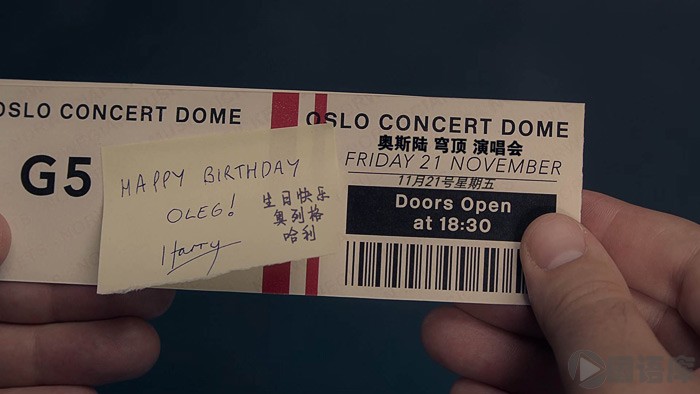 OSLO CONCERT DOME
G5
HAPPY BIRTHDAY
OLEG!
Harry
生日快乐
奥列格
哈利
OSLO CONCERT DOME
奥斯陆 穹顶 演唱会
FRIDAY 21 NOVEMBER
11月21号星期五
Doors Open
at 18:30